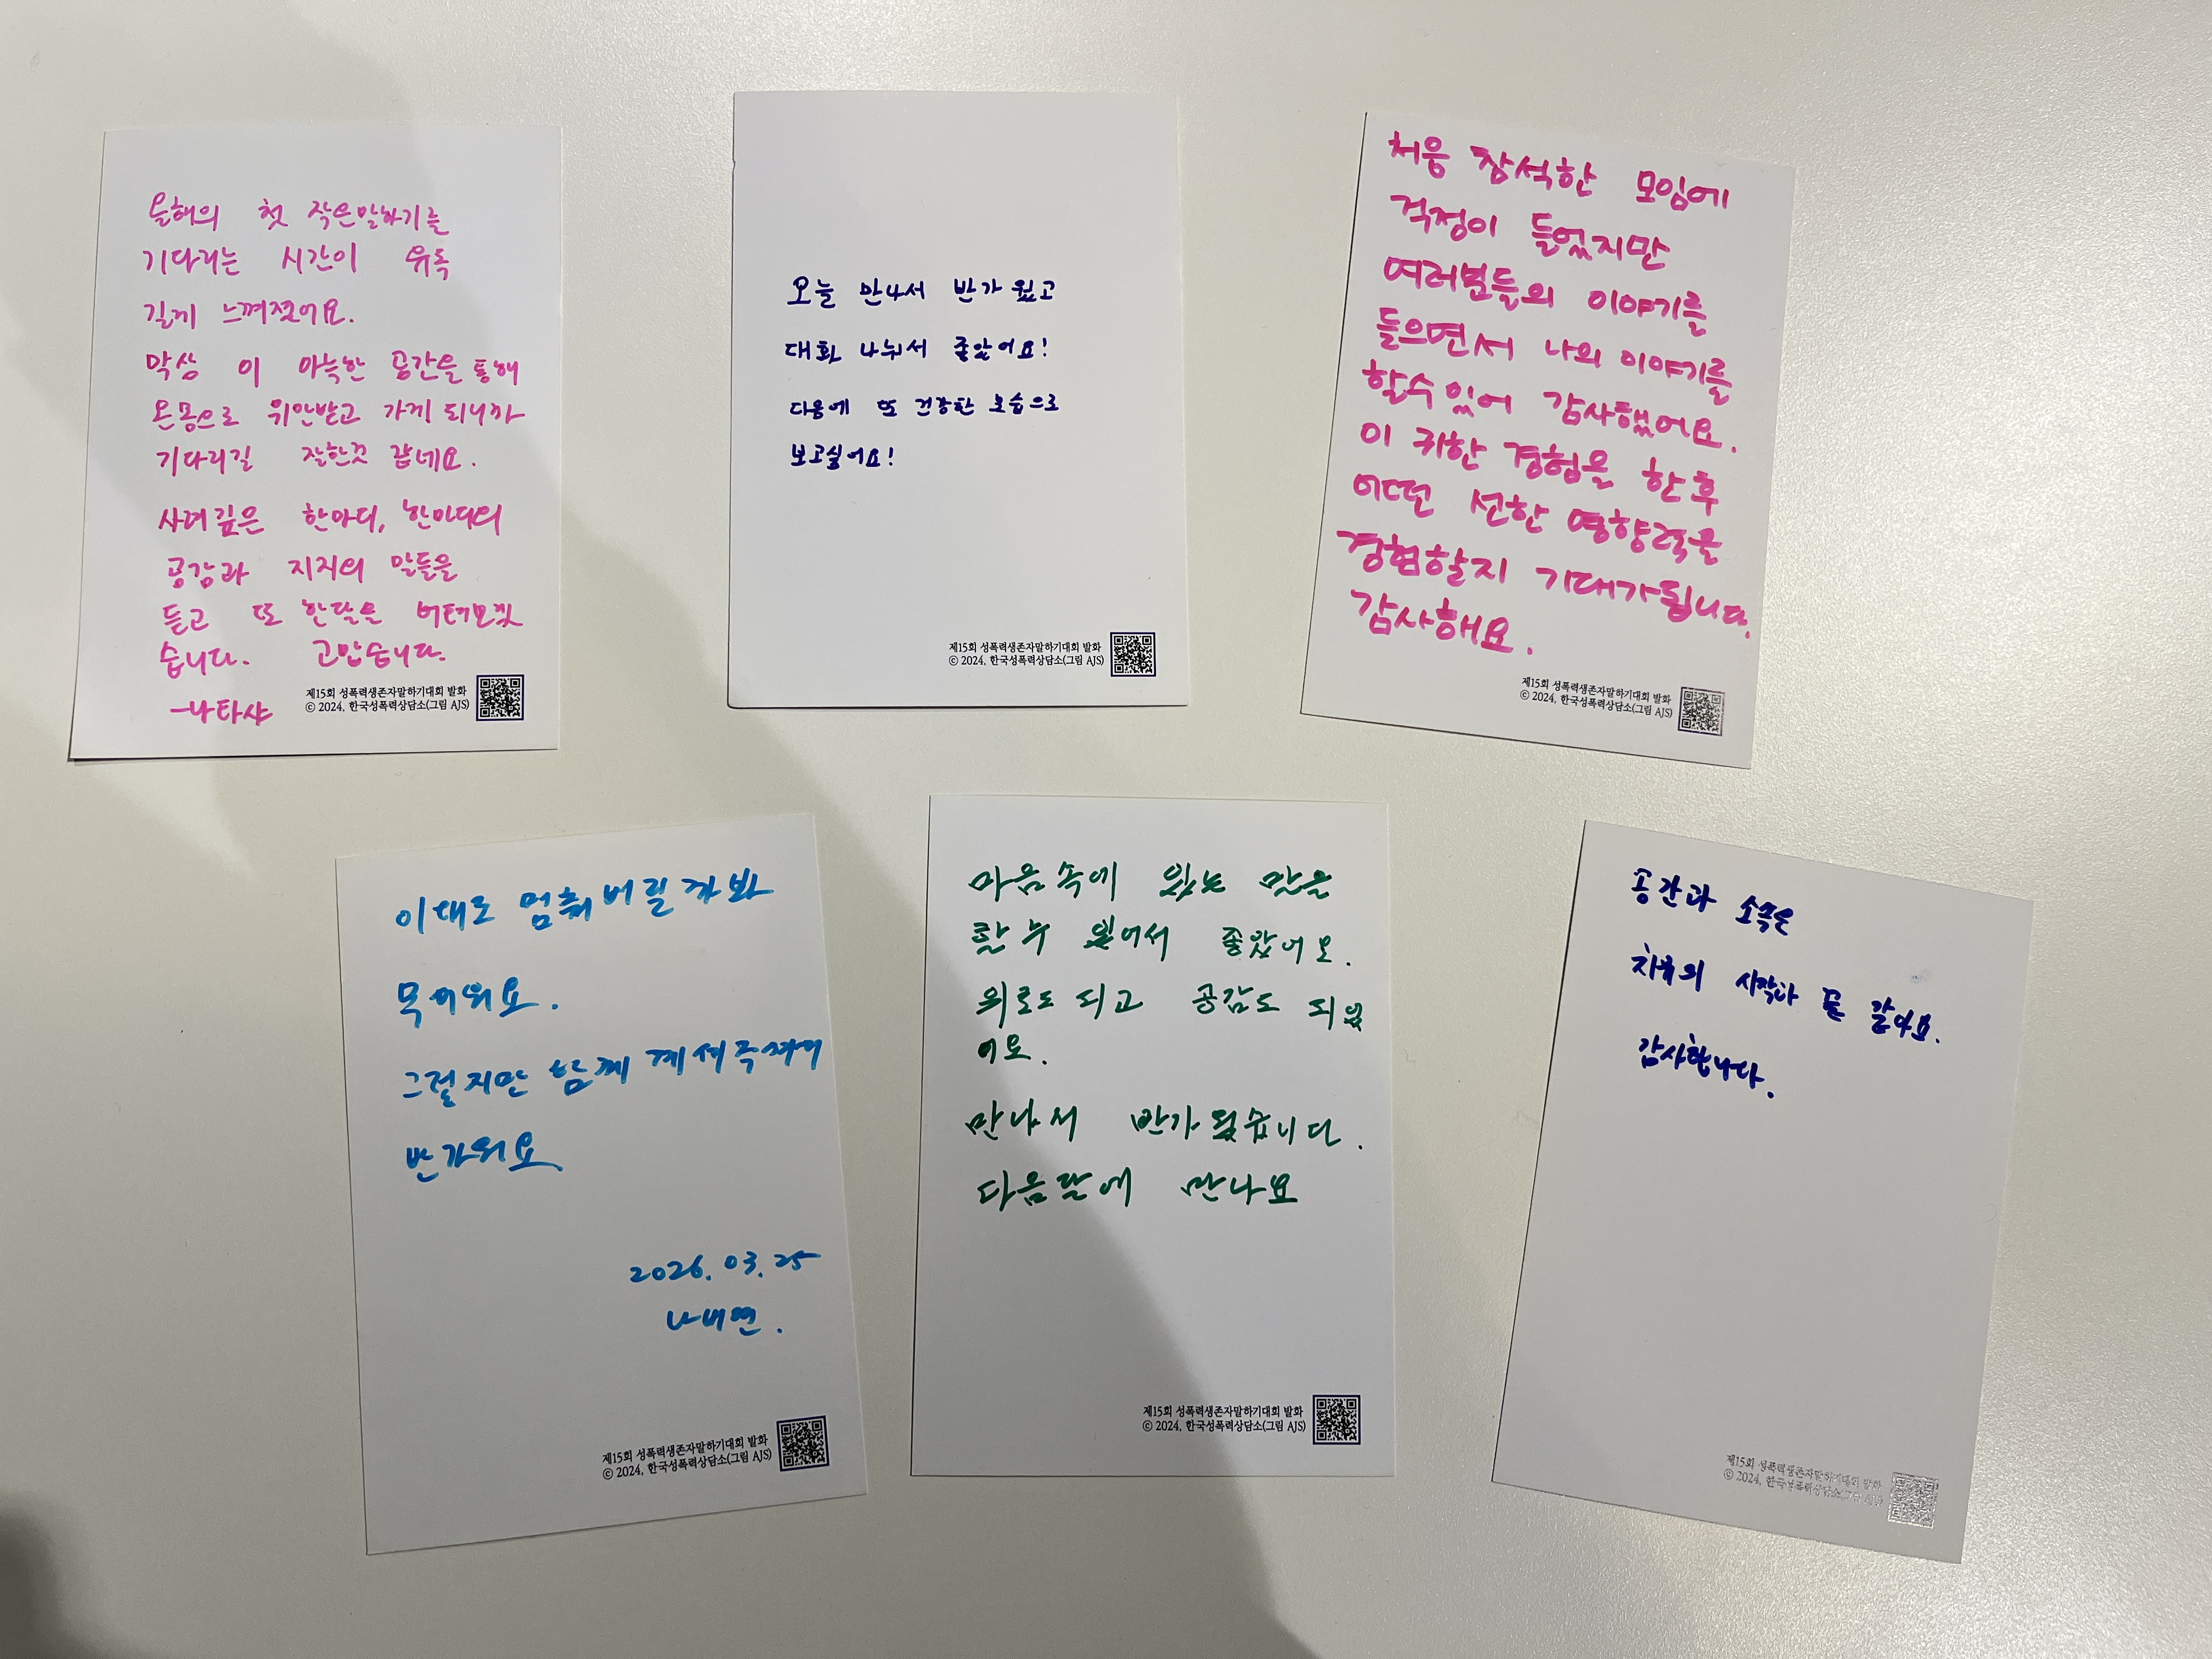 올해의 첫 작은말하기를
기다리는 시간이 유독
길게 느껴졌어요.
막상 이 아늑한 공간을 통해
온몸으로 위안받고 가게 되니까
기다리길 잘한것 같네요.
사려깊은 한마디, 한마디의
공감과 지지의 말들을
듣고 또 한달을 버텨보겠
습니다. 고맙습니다.
-나타샤
제15회 성폭력생존자말하기대회 발화
© 2024, 한국성폭력상담소(그림 AJS)
오늘 만나서 반가웠고
대화 나눠서 좋았어요!
다음에 또 건강한 모습으로
보고싶어요!
제15회 성폭력생존자말하기대회 발화
© 2024, 한국성폭력상담소(그림 AJS)
처음 참석한 모임에
걱정이 들었지만
여러분들의 이야기를
들으면서 나의 이야기를
할수있어 감사했어요.
이 귀한 경험을 한 후
어떤 선한 영향력을
경험할지 기대가됩니다.
감사해요.
제15회 성폭력생존자말하기대회 발화
© 2024, 한국성폭력상담소(그림 AJS)
이대로 멈춰버릴까봐
무서워요.
그렇지만 함께 계셔주셔서
반가워요
2026.03.25
제15회 성폭력생존자말하기대회 발화
© 2024, 한국성폭력상담소(그림 AJS)
마음속에 있는 말을
할 수 있어서 좋았어요.
위로도 되고 공감도 되었
어요.
만나서 반가웠습니다.
다음달에 만나요
제15회 성폭력생존자말하기대회 발화
© 2024, 한국성폭력상담소(그림 AJS)
공간과 소속은
치유의 시작과 끝 같아요.
감사합니다.
제15회 성폭력생존자말하기대회 발화
© 2024, 한국성폭력상담소(그림 AJS)